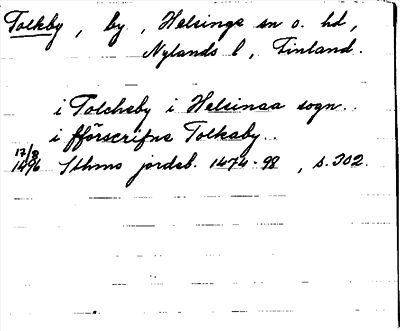 Tolkby, by, Helsinge sn o. hd,
Nylands l, Finland.
i Tolcheby i Helsingaa sogn..
i fförscrifne Tolkaby..
17/8
1496 Sthms jordeb. 1474-98, s. 302.